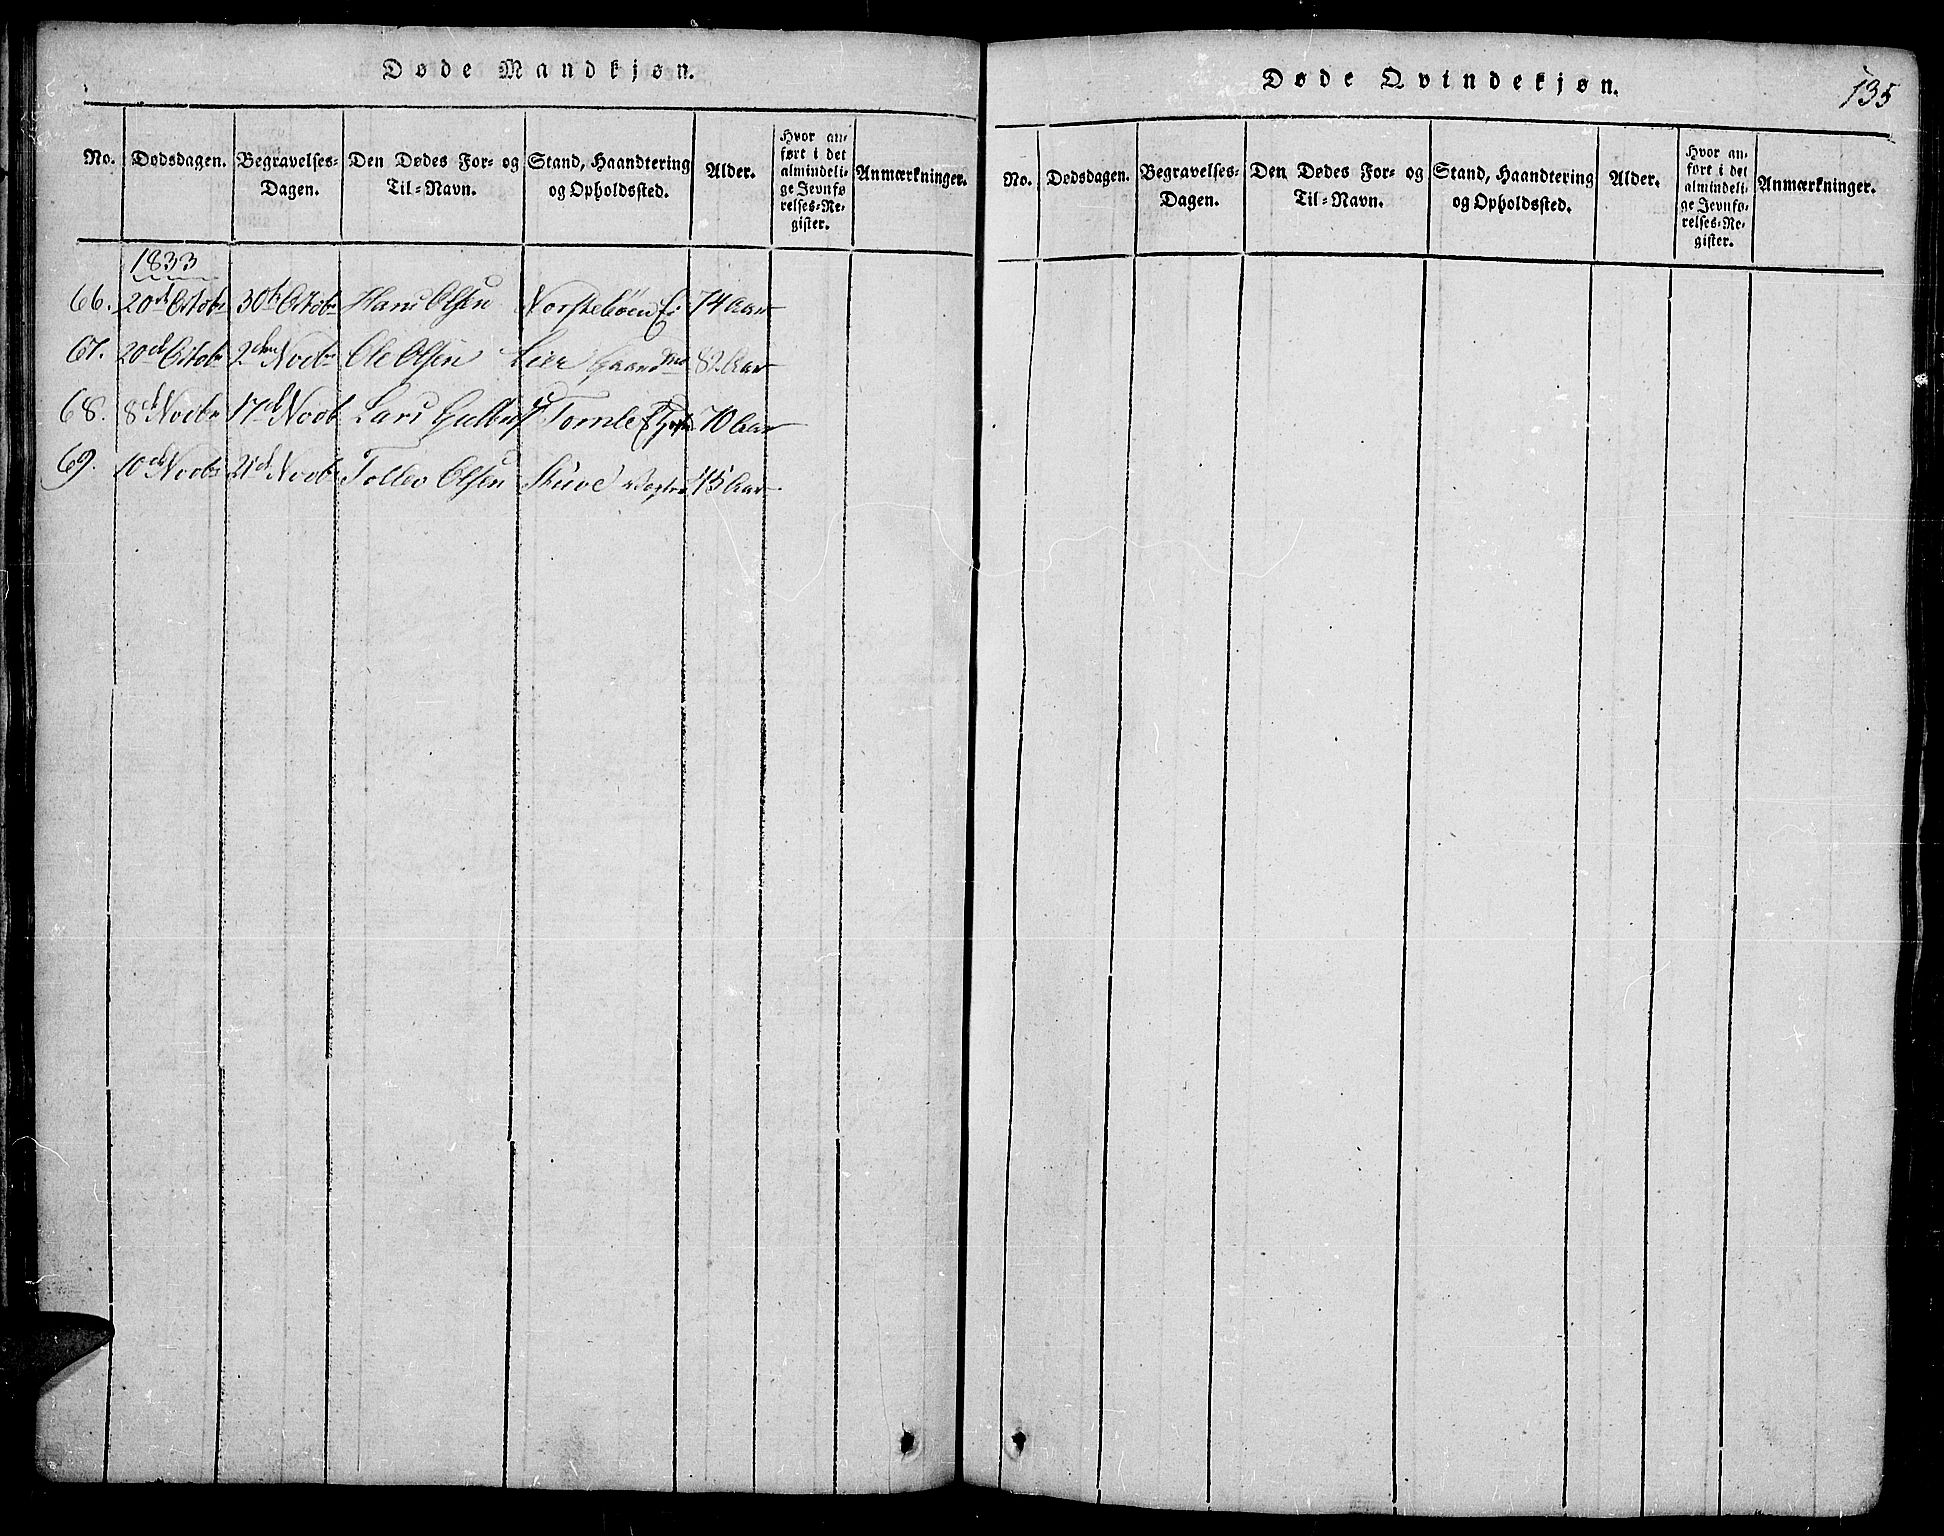 Døde Mandkjøn.
No. Dødsdagen. Begravelses-Dagen. Den Dødes For- og Til-Navn. Stand, Haandtering og Opholdssted. Alder. Hvor anført i det almindelige Jevnførelses-Register. Anmærkninger.
1833
66. 20de Octobr 30te Octobr Hans Olsen Norstebøen 74 Aar
67. 20de Octobr 2den Novbr Ole Olsen Lier Gaardmd 82 Aar
68. 8de Novbr 17de Novb Lars Tomle 70 Aar
69. 10de Novbr Novbr Tollev Olsen 45 Aar
Døde Qvindekjøn.
135
No. Dødsdagen. Begravelses-Dagen. Den Dødes For- og Til-Navn. Stand, Haandtering og Opholdssted. Alder. Hvor anført i det almindelige Jevnførelses-Register. Anmærkninger.